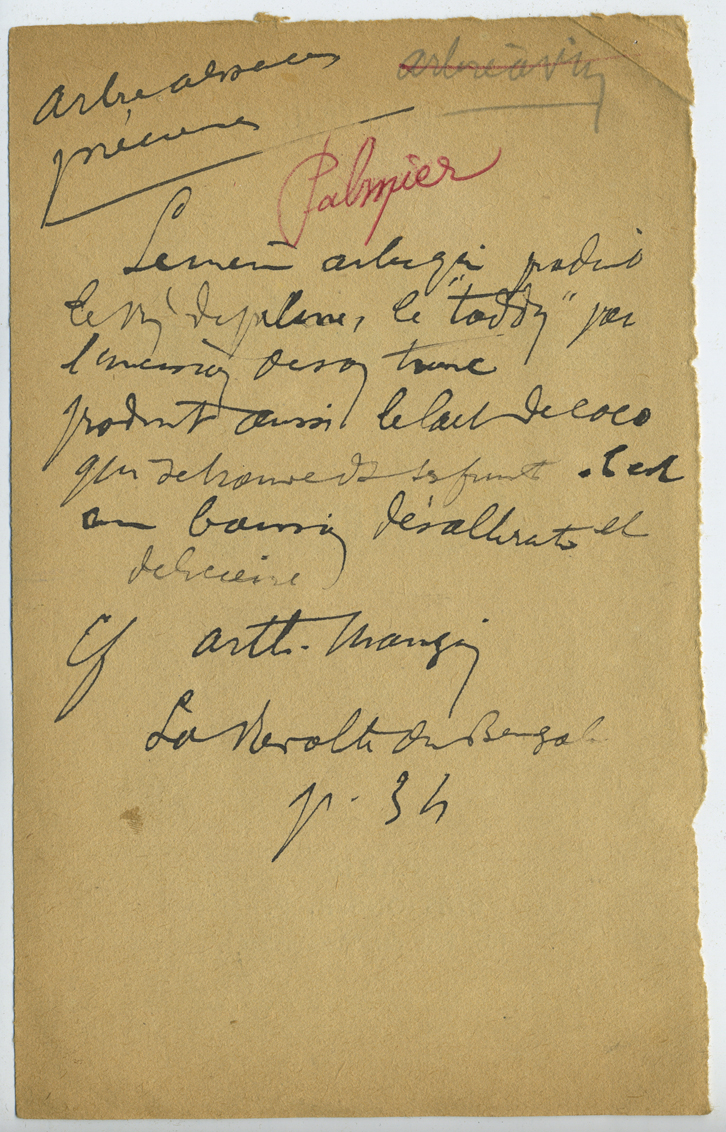 arbre à vin
précieux
Palmier
Le même arbre qui produit
le vin de palme, le "toddy" par
l'incision de son tronc
produit aussi le lait de coco
qui se trouve ds ses fruits. C'est
une boisson désaltérante et
délicieuse
Cf Arth. Mangin
La Révolte au Bengale
p. 34